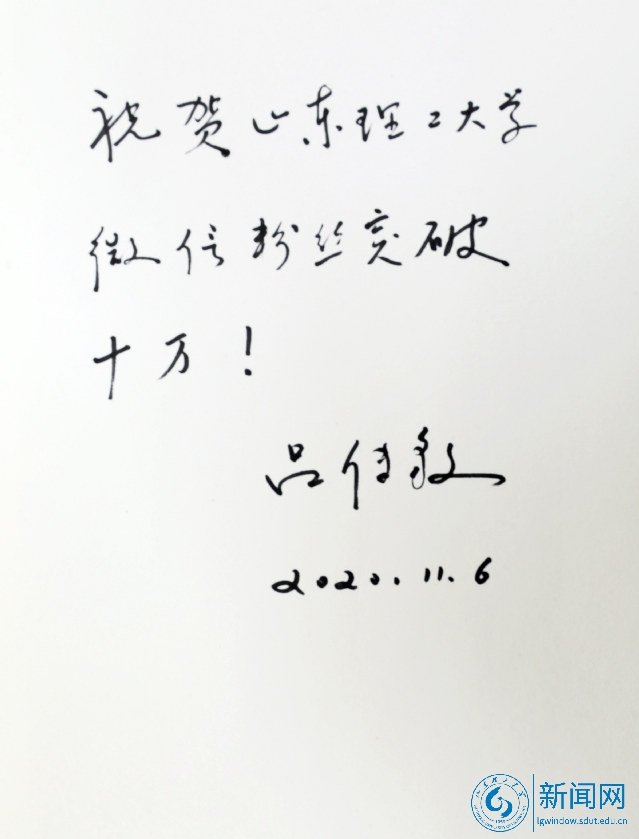 祝贺山东理工大学
微信粉丝突破
十万！
吕传毅
2020.11.6
新闻网
lgwindow.sdut.edu.cn